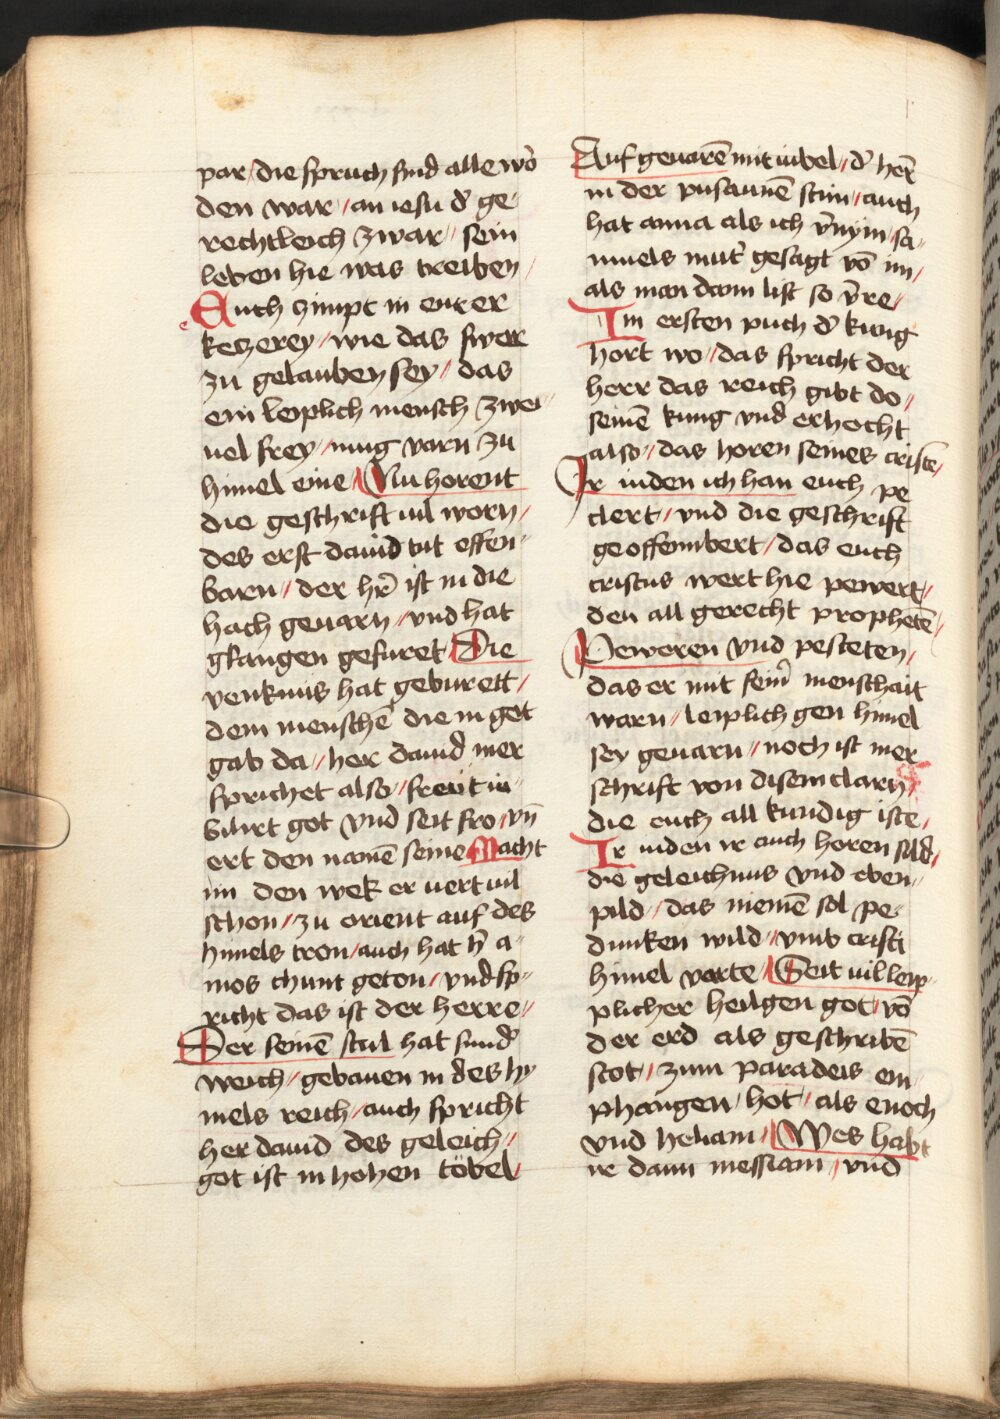 par / die spruch sind alle wo᷑
den war / an iesu d᷑ ge-
rechtleich zwar // sein
leben hie was treiben /
Auch zimpt in ewer
keczerey / wie das swer
zu gelauben sey // das
ein leiplich mensch zwei-
uel frey / mug varn zu
himel eine / Nu horent
die geschrift uil worn /
des erst dauid tut offen-
barn // der hr̄ ist in die
hoch geuarn / vnd hat
gfangen gefuret / Die
venknus hat geburett /
dem menschē die in got
gab da // her dauid mer
sprichet also / freut iu-
bilirt got vnd seit fro / vn̄
ert den namē seine Macht
im den wek er uert uil
schon / zu orient auf des
himels tron / auch hat h᷑ a-
mos chunt geton / vnd sp-
richt das ist der herre //
Der seinē stul hat sund᷑
weich / gebauen in des hy
mels reich / auch spricht
her dauid des geleich //
got ist in hohen töbel
Auf geuarē mit iubel / d᷑ her̄
in der pusaunē stim / auch
hat anna als ich v᷑nym / sa-
muels mut᷑ gesagt vō im /
als man dann list so v᷑re /
Im ersten puch d᷑ kunig
hort wo / das spricht der
herr das reich gibt do /
seinē kung vnd erhocht
also / das horen seines cristē /
Ir iuden ich han euch pe
clert / vnd die geschrift
geoffembert / das euch
cristus wert hie pewert /
den all gerecht prophetē
Peweren vnd pesteten /
das er mit seinr̄ menschait
warn / leiplich gen himel
sey geuarn // noch ist mer
schrift von disem clarn /
die euch all kundig iste /
Ir iuden ir auch horen suld /
die geleichnus vnd eben-
pild / das niemē sol pe-
dunken wild / vmb cristi
himel verte / Seit uil leip-
plicher heilgen got / vō
der erd als geschribē
stot / zum paradeis em
phangen hot / als enoch
vnd heliam / Wes habt
ir dann messiam / vnd